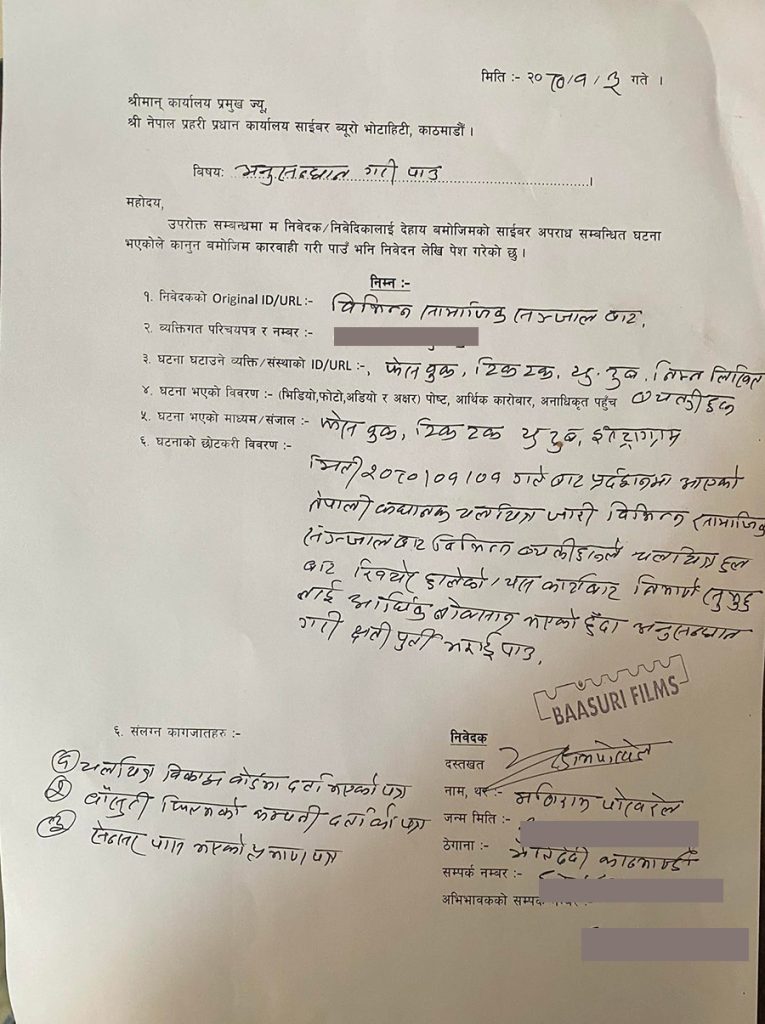 मिति :- २०८०/१/३ गते ।
श्रीमान् कार्यालय प्रमुख ज्यू,
श्री नेपाल प्रहरी प्रधान कार्यालय साईबर ब्यूरो भोटाहिटी, काठमाडौं ।
विषयः अनुसन्धान गरी पाउ
महोदय,
उपरोक्त सम्बन्धमा म निवेदक/निवेदिकालाई देहाय बमोजिमको साईबर अपराध सम्बन्धित घटना
भएकोले कानुन बमोजिम कारवाही गरी पाउँ भनि निवेदन लेखि पेश गरेको छु ।
निम्न :-
१. निवेदकको Original ID/URL:- विभिन्न सामाजिक सञ्जाल बाट,
२. व्यक्तिगत परिचयपत्र र नम्बर :-
३. घटना घटाउने व्यक्ति/संस्थाको ID/URL :-, फेस बुक, टिक टक, यु. टुब, निम्न लिखित
४. घटना भएको विबरण :- (भिडियो,फोटो,अडियो र अक्षर) पोष्ट, आर्थिक कारोबार, अनाधिकृत पहुँच
५. घटना भएको माध्यम/संजाल :- फेस बुक, टिक टक यु टुब, इन्स्टाग्राम
६. घटनाको छोटकरी विबरण :-
मिती २०८०/०१/०१ गते बाट प्रर्दशनमा आएको
नेपाली कथानक चलचित्र जारी विभिन्न सामाजिक
सञ्जाल बाट विभिन्न चलचित्र हल
बाट खिचेर हालेको / यस कार्यबाट निर्माण समुह
लाई आर्थिक नोक्सान भएको हुँदा अनुसन्धान
गरी क्षती पुर्ती भराई पाउ,
BAASURI FILMS
६. संलग्न कागजातहरु :-
१ चलचित्र विकास बोर्डमा दर्ता भएको पत्र
२ बाँसुरी फिल्मको कम्पनी दर्ताको पत्र
३ सेन्सर पास भएको प्रमाण पत्र
निवेदक
दस्तखत
नाम, थर :- मणिराम पोखरेल
जन्म मिति :-
ठेगाना :- काठमाण्डौ
सम्पर्क नम्बर :-
अभिभावकको सम्पर्क